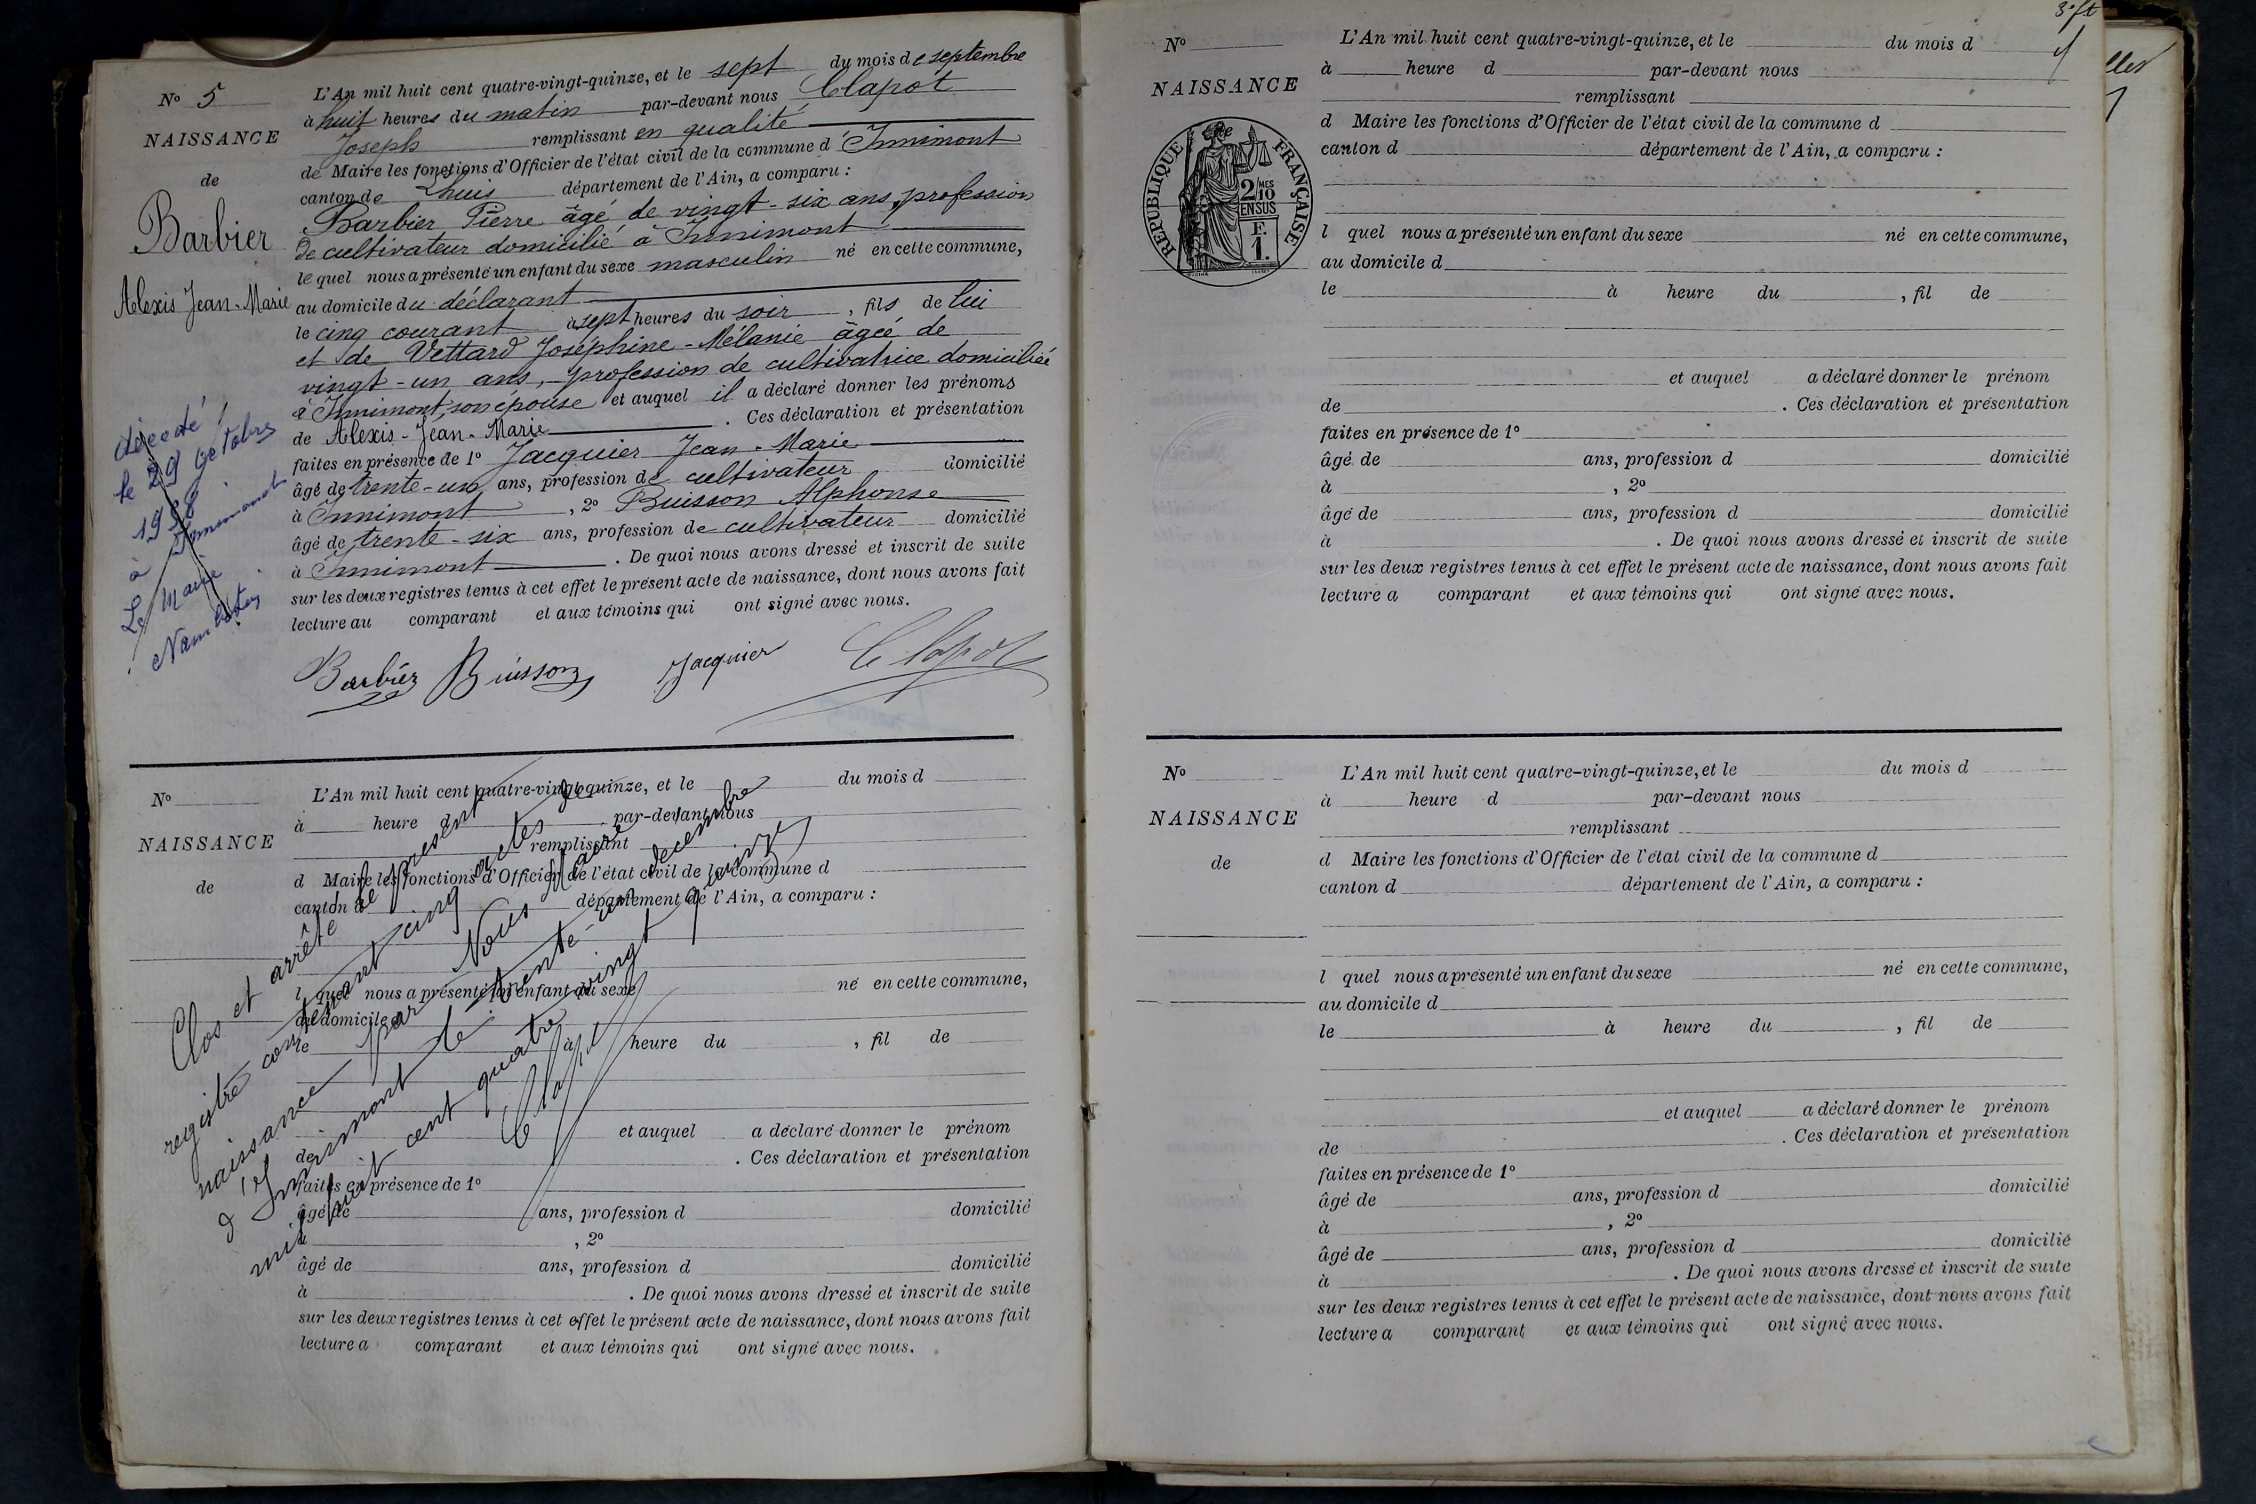 N° 5
NAISSANCE
de
Barbier
Alexis Jean-Marie
décédé
le 29 octobre
à
Le Maire
L'An mil huit cent quatre-vingt-quinze, et le sept du mois de septembre
à huit heures du matin par-devant nous Clapot
Joseph remplissant en qualité
de Maire les fonctions d'Officier de l'état civil de la commune d'Innimont
canton de Lhuis département de l'Ain, a comparu :
Barbier Pierre âgé de vingt-six ans, profession
de cultivateur domicilié à Innimont
lequel nous a présenté un enfant du sexe masculin né en cette commune,
au domicile du déclarant
le cinq courant à sept heures du soir, fils de lui
et de Vettard Joséphine-Mélanie âgée de
vingt-un ans, profession de cultivatrice domiciliée
à Innimont, son épouse et auquel il a déclaré donner les prénoms
de Alexis-Jean-Marie. Ces déclaration et présentation
faites en présence de 1° Jacquier Jean-Marie
âgé de trente-un ans, profession de cultivateur domicilié
à Innimont, 2° Buisson Alphonse
âgé de trente-six ans, profession de cultivateur domicilié
à Innimont. De quoi nous avons dressé et inscrit de suite
sur les deux registres tenus à cet effet le présent acte de naissance, dont nous avons fait
lecture au comparant et aux témoins qui ont signé avec nous.
Barbier Buisson Jacquier Clapot
N°
NAISSANCE
de
L'An mil huit cent quatre-vingt-quinze, et le du mois d
à heure d par-devant nous
remplissant
d Maire les fonctions d'Officier de l'état civil de la commune d
canton d département de l'Ain, a comparu :
l quel nous a présenté un enfant du sexe né en cette commune,
au domicile d
le à heure du , fil de
et auquel a déclaré donner le prénom
de . Ces déclaration et présentation
faites en présence de 1°
âgé de ans, profession d domicilié
à , 2°
âgé de ans, profession d domicilié
à . De quoi nous avons dressé et inscrit de suite
sur les deux registres tenus à cet effet le présent acte de naissance, dont nous avons fait
lecture a comparant et aux témoins qui ont signé avec nous.
Clos et arrêté le présent
registre contenant cinq actes de
naissance par Nous Maire
d'Innimont le trente-un décembre
mil huit cent quatre vingt quinze
Clapot
N°
NAISSANCE
RÉPUBLIQUE FRANÇAISE
2/10 MES
EN SUS
F.
1.
L'An mil huit cent quatre-vingt-quinze, et le du mois d
à heure d par-devant nous
remplissant
d Maire les fonctions d'Officier de l'état civil de la commune d
canton d département de l'Ain, a comparu :
l quel nous a présenté un enfant du sexe né en cette commune,
au domicile d
le à heure du , fil de
et auquel a déclaré donner le prénom
de . Ces déclaration et présentation
faites en présence de 1°
âgé de ans, profession d domicilié
à , 2°
âgé de ans, profession d domicilié
à . De quoi nous avons dressé et inscrit de suite
sur les deux registres tenus à cet effet le présent acte de naissance, dont nous avons fait
lecture a comparant et aux témoins qui ont signé avec nous.
N°
NAISSANCE
de
L'An mil huit cent quatre-vingt-quinze, et le du mois d
à heure d par-devant nous
remplissant
d Maire les fonctions d'Officier de l'état civil de la commune d
canton d département de l'Ain, a comparu :
l quel nous a présenté un enfant du sexe né en cette commune,
au domicile d
le à heure du , fil de
et auquel a déclaré donner le prénom
de . Ces déclaration et présentation
faites en présence de 1°
âgé de ans, profession d domicilié
à , 2°
âgé de ans, profession d domicilié
à . De quoi nous avons dressé et inscrit de suite
sur les deux registres tenus à cet effet le présent acte de naissance, dont nous avons fait
lecture a comparant et aux témoins qui ont signé avec nous.